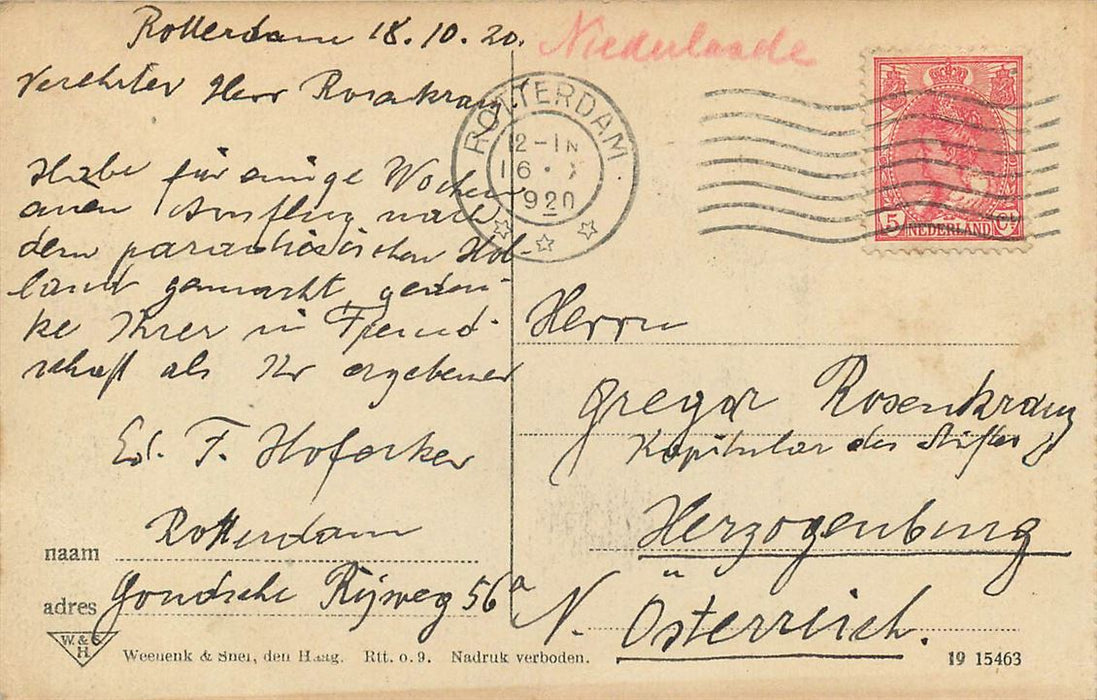 Rotterdam 18.10.20.
Niederlande
Verehrter Herr Rosenkranz.
Habe für einige Wochen
einen Ausflug nach
dem paradiesischen Hol-
land gemacht, geden-
ke Ihrer in Freund-
schaft als Ihr ergebener
Ed. F. Hofecker
Rotterdam
naam
adres Goudsche Rijweg 56a
W. & S.
H.
Weenenk & Snel, den Haag. Rtt. o. 9. Nadruk verboden.
ROTTERDAM
12-1N
16 · X
1920
5 NEDERLAND Ct
Herrn
Gregor Rosenkranz
Kapitular des Stiftes
Herzogenburg
N. Österreich.
19 15463